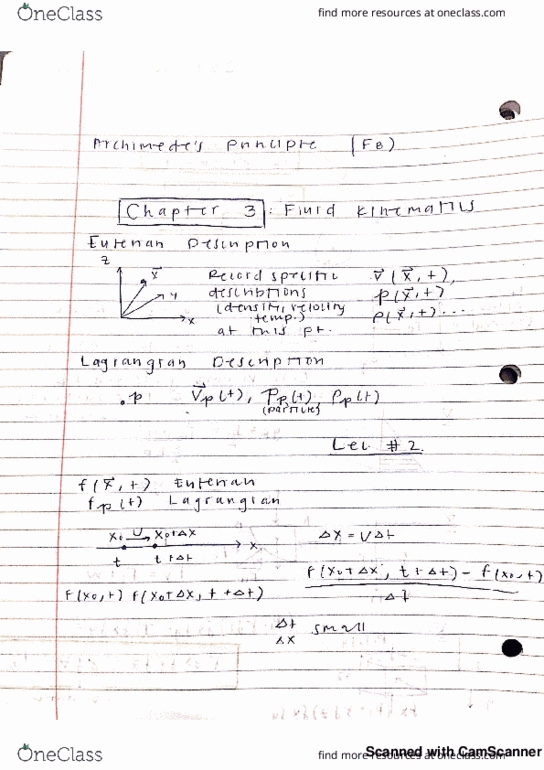 OneClass
find more resources at oneclass.com
Archimede's Principle (FB)
Chapter 3: Fluid Kinematics
Eulerian Description
z
x⃗
y
x
Record specific
descriptions
(density, velocity
temp.)
at this pt.
v⃗(x⃗,t),
p(x⃗,t)
ρ(x⃗,t)...
Lagrangian Description
.p v⃗p(t), Pp(t), ρp(t)
(particle)
Lec #2
f(x⃗,t) Eulerian
fp(t) Lagrangian
x₀ U→ x₀+Δx
x
t t+Δt
Δx = UΔt
f(x₀,t) f(x₀+Δx, t+Δt)
f(x₀+Δx, t+Δt) - f(x₀,t)
Δt
Δt
Δx small
OneClass
find more resources at oneclass.com
Scanned with CamScanner